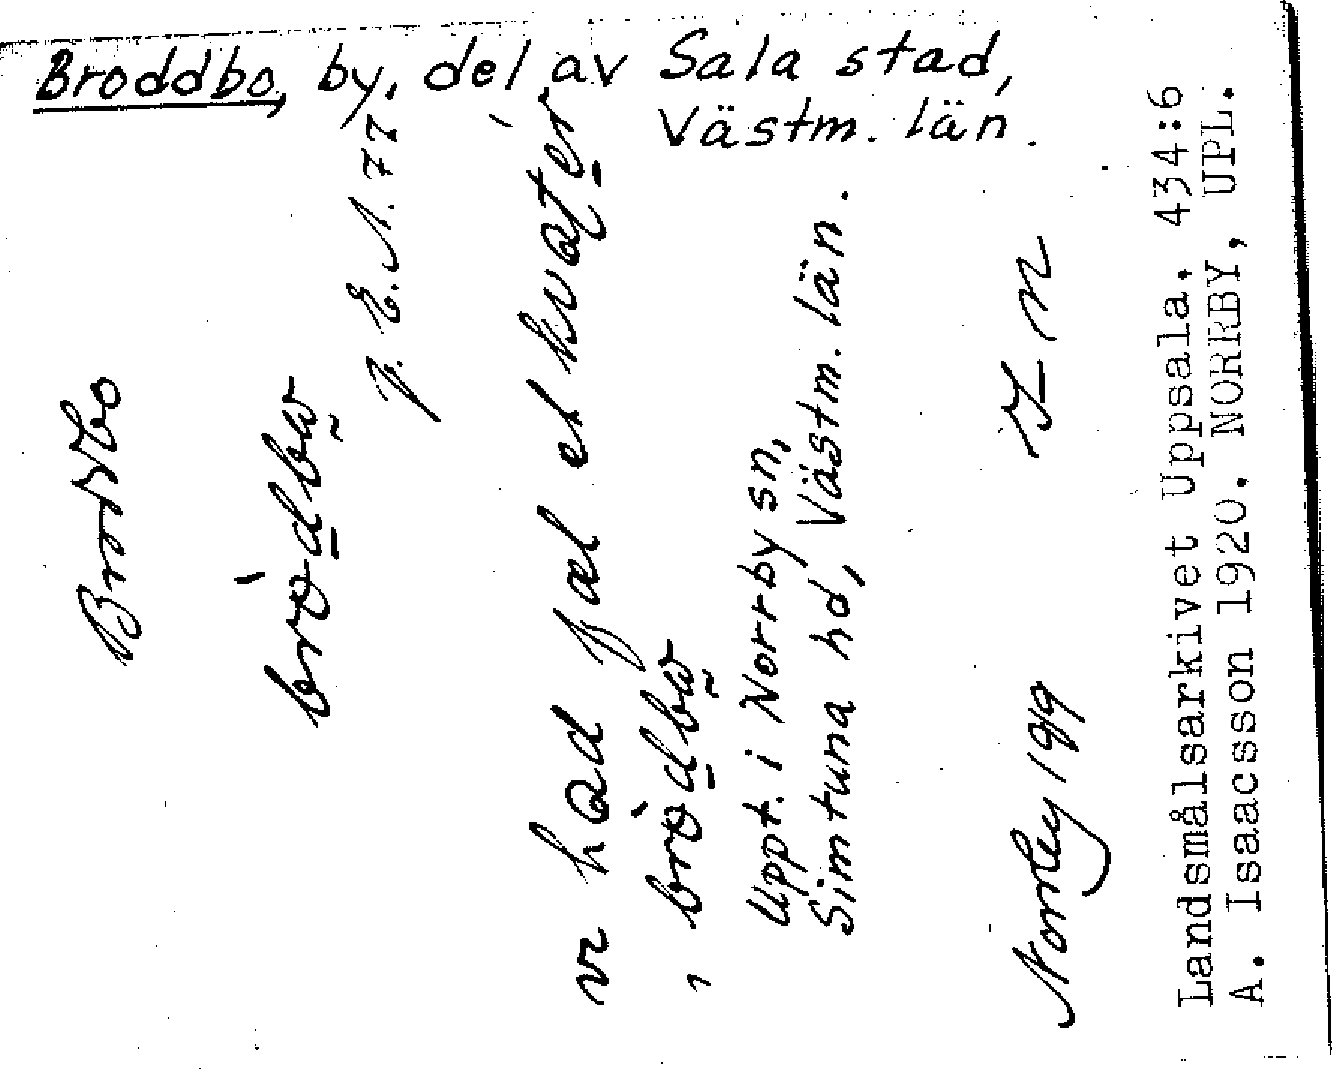 Broddbo, by, del av Sala stad,
Västm. län.
Broddbo
bròdbω
J. E. N. 77
vi had jæl et kvaʈér
ı bròdbω
Uppt. i Norrby sn,
Simtuna hd, Västm. län.
Norrby 1919
Landsmålsarkivet Uppsala. 434:6
A. Isaacsson 1920. NORRBY, UPL.